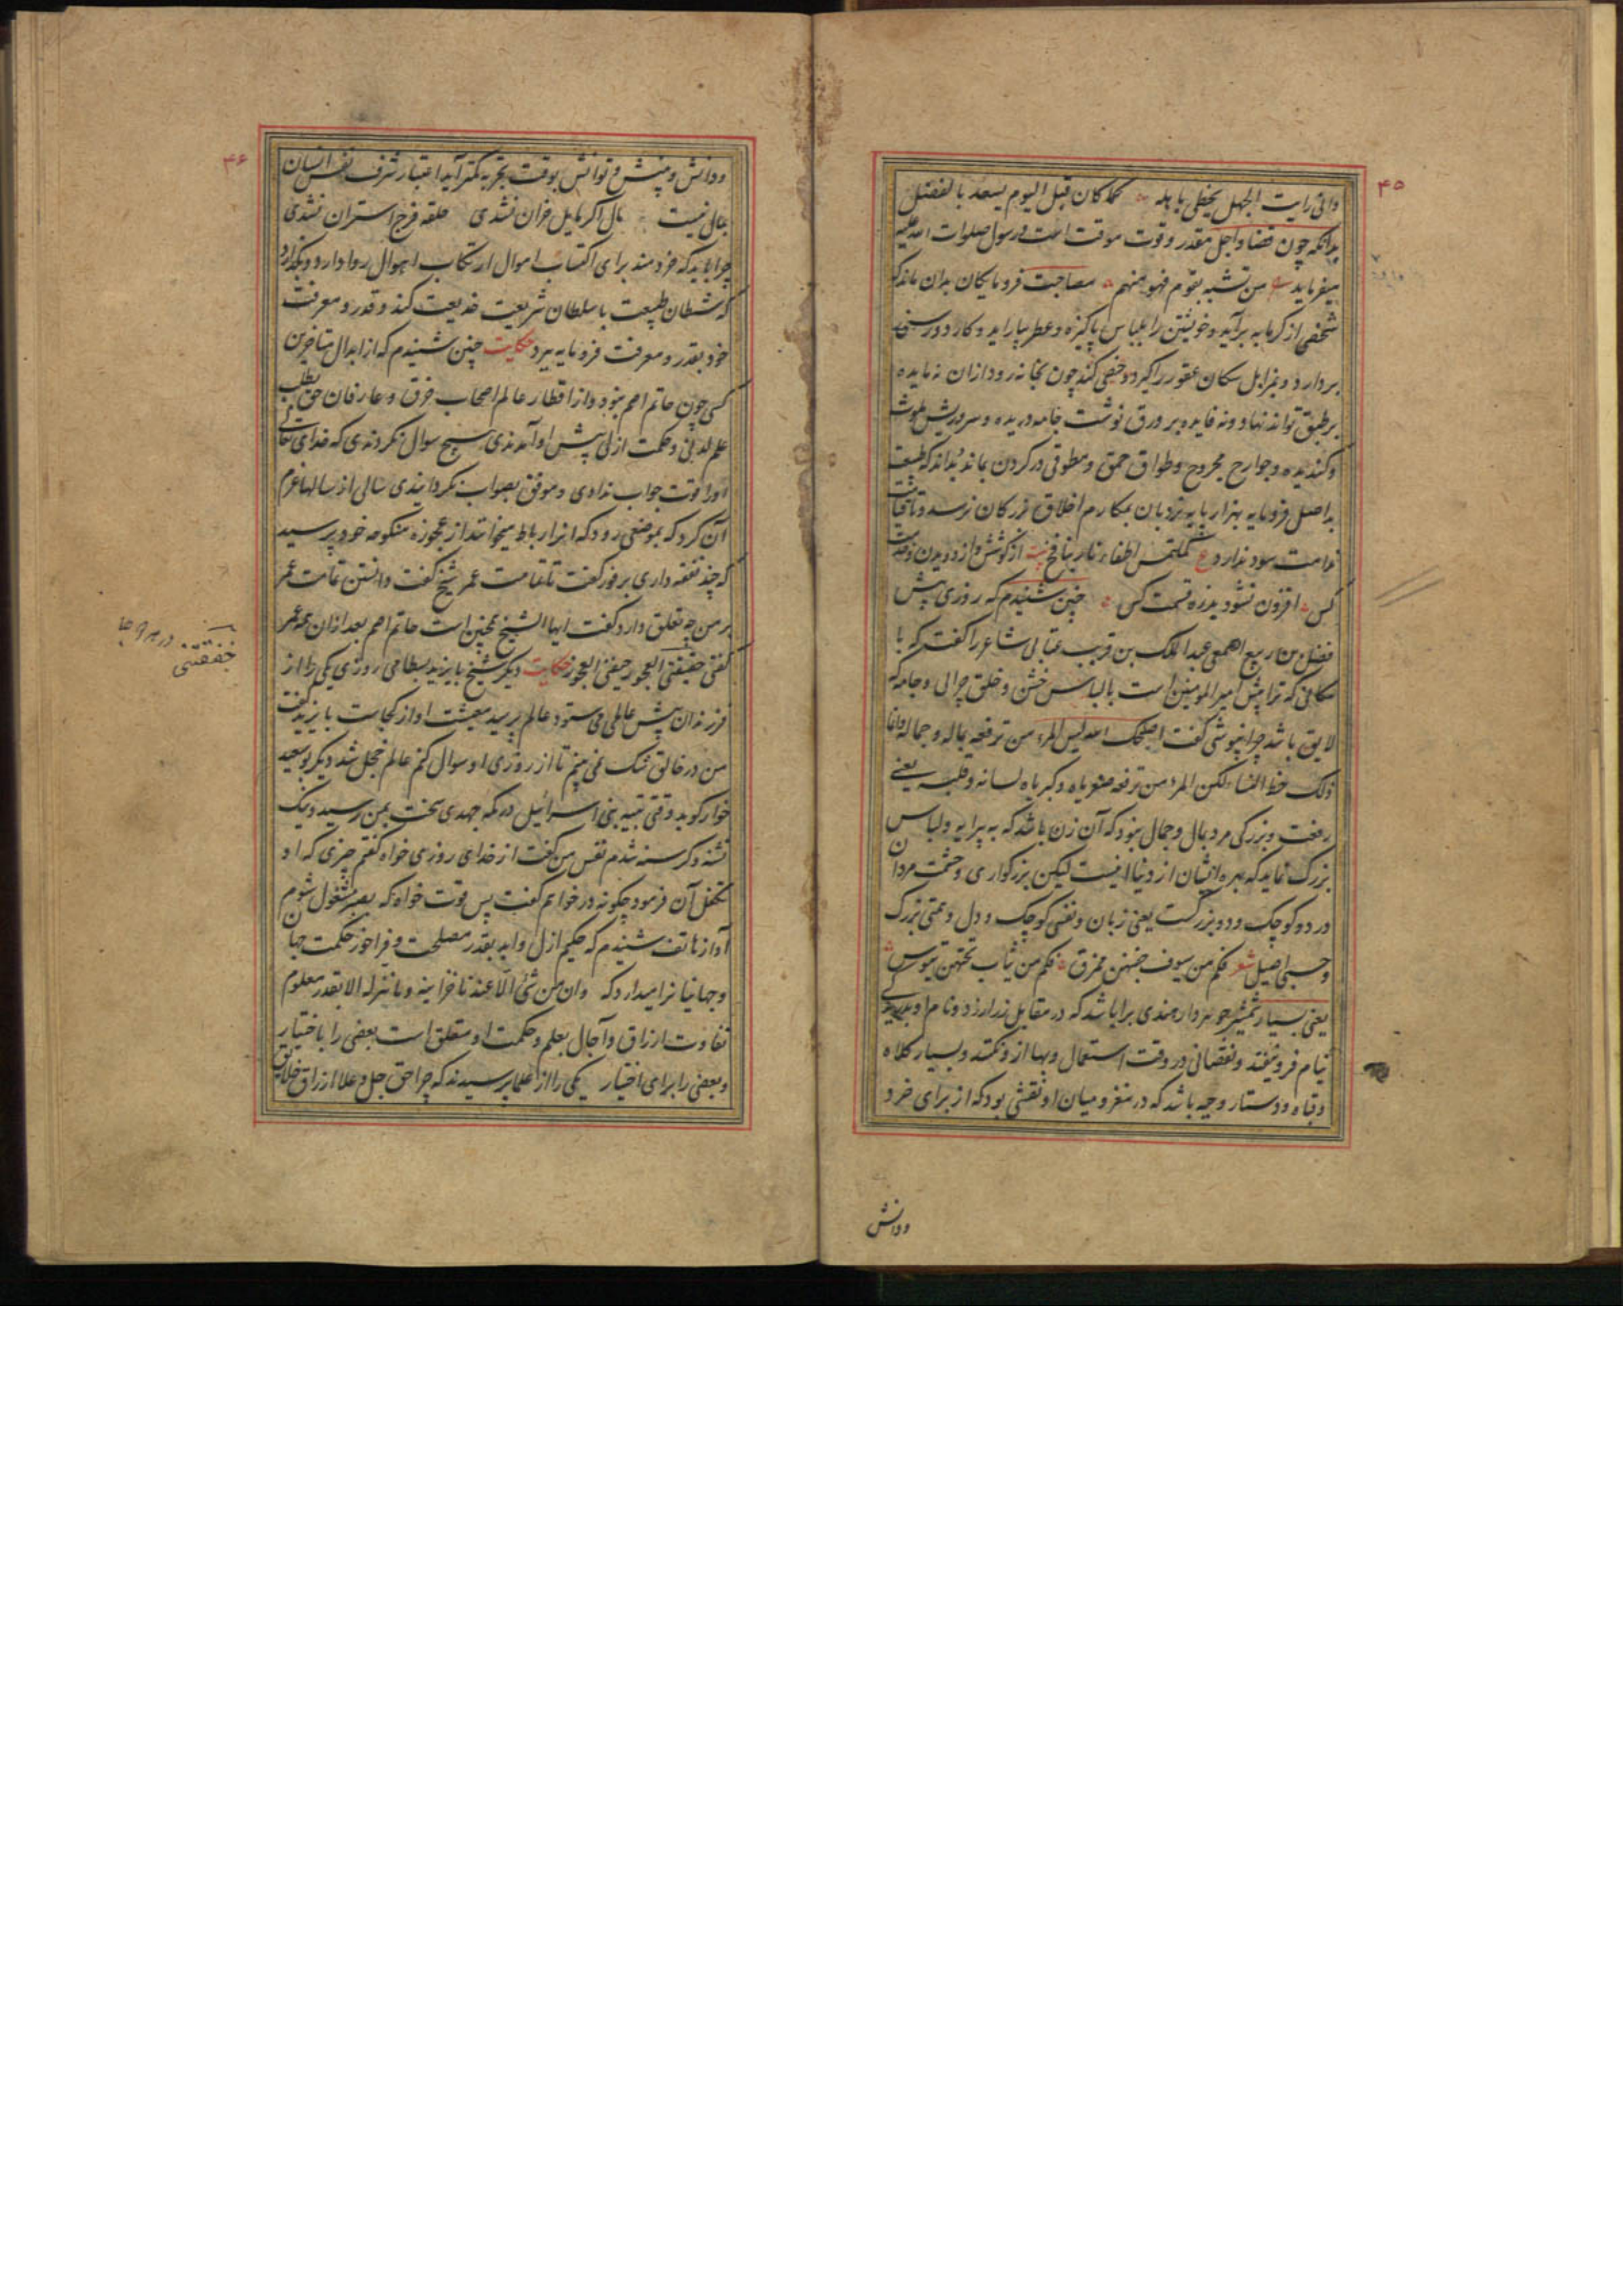 ۴۵
وانی رایت الجهل یحظی باهله کما کان قبل الیوم یسعد بالفضل
بدانکه چون قضا و اجل مقدر و قوت موقت است و رسول صلوات الله علیه
میفرماید من تشبه بقوم فهو منهم مصاحبت فرومایکان بدان ماند که
شخصی از کرمابه برآید و خویشتن را بلباس پاکیزه و عطر بیاراید و کارد و رسنی
بردارد و بمزابل سکان عقور را کیرد و خصی کند چون بخانه رود ازان نه مایده
بر طبق تواند نهاد و نه فایده بر ورق نوشت جامه دریده و سر و ریش ملوث
و کندیده و جوارح مجروح و طواق حمق و مطوقی در کردن بماند بداند که طبیعت
بد اصل فرومایه بهزار پایه نردبان بمکارم اخلاق بزرکان نرسد و
ندامت سود ندارد ع کملتمس اطفاء نار بنافخ بیت از کوشش و از دویدن و
کس افزون نشود بذره قسمت کس چنین شنیدم که روزی پیش
فضل بن ربیع اصمعی عبد الملک بن قریب عتابی شاعر را کفت که با
مکانی که ترا پیش امیر المومنین است با لباس خشن و خلق چرایی و جامه که
لایق باشد چرا نپوشی کفت اصلحک الله لیس المرء من ترفعه ماله و جماله وانما
ذلک حظ النساء لکن المرء من ترفعه صغریاه و کبریاه لسانه و قلبه یعنی
رفعت و بزرکی مرد بمال و جمال نبود که آن زن باشد که به پیرایه و لباس
بزرک نماید که بهره ایشان از دنیا اینست لیکن بزرکواری و حشمت مردان
در دو کوچک و دو بزرکست یعنی زبان و نفسی کوچک و دل و همتی بزرک
و حسبی اصیل شعر فکم من سیوف جفنهن ممزق فکم من ثیاب تحتهن تیوس
یعنی بسیار شمشیر جوهردار هندی برا باشد که در مقابل زر ارزد و نام او
نیام فرو نیفتد و نقصانی در وقت استعمال و بها از و نکند و بسیار کلاه
و قباه و دستار وجیه باشد که در مغز و میان او نقشی بود که از برای خرد
ودانش
۴۶
و دانش و بینش و توانش بوقت تجربه کمتر آید اعتبار شرف نفس انسان
بمال نیست مال اکر مایل خران نشدی حلقه فرج استران نشدی
چرا باید که خردمند برای اکتساب اموال ارتکاب اهوال روا دارد و بکذارد
که شیطان طبیعت با سلطان شریعت خدیعت کند و قدر و معرفت
خود بقدر و معرفت فرومایه برد حکایت چنین شنیدم که از ابدال متاخرین
کسی چون حاتم اصم نبود و از اقطار عالم اصحاب خرق و عارفان حق بطلب
علم لدنی و حکمت ازلی پیش او آمدندی هیچ سوال نکردندی که خدای تعالی
اورا قوت جواب ندادی و موفق بصواب نکردانیدی سالی از سالها عزم
آن کرد که بموضعی رود که انرا رباط میخوانند از عجوزه منکوحه خود پرسید
که چند نفقه داری بر فور کفت تا تمامت عمر شیخ کفت دانستن تمامت عمر
بر من چه تعلق دارد کفت ایها الشیخ همچنین است حاتم اصم بعد ازان همه عمر
کفتی خفقتنی العجوز خفقتنی العجوز حکایت دیکر شیخ بایزید بسطامی روزی یکی را از
فرزندان پیش عالمی می ستود عالم پرسید معیشت او از کجاست بایزید کفت
من در خالق شک نمی بینم تا از روزی او سوال کنم عالم خجل شد دیکر بوسعید
خراز کوید وقتی بتیه بنی اسرائیل در مکه جهدی سخت بمن رسید و نیک
تشنه و کرسنه شدم نفس من کفت از خدای روزی خواه کفتم چیزی که او
تکفل آن فرمود چکونه درخواهم کفت پس قوت خواه که بصبر مشغول شوم
آواز هاتف شنیدم که حکیم ازل و ابد بقدر مصلحت و فراخور حکمت جهان
و جهانیانرا میدارد که وان من شیء الا عندنا خزاینه وما ننزله الا بقدر معلوم
تفاوت ارزاق و آجال بعلم و حکمت او متعلق است بعضی را باختیار
و بعضی را برای اختیار یکی را از علما پرسیدند که چرا حق جل و علا ارزاق خلایق
خفقتنی
در هر دو جا